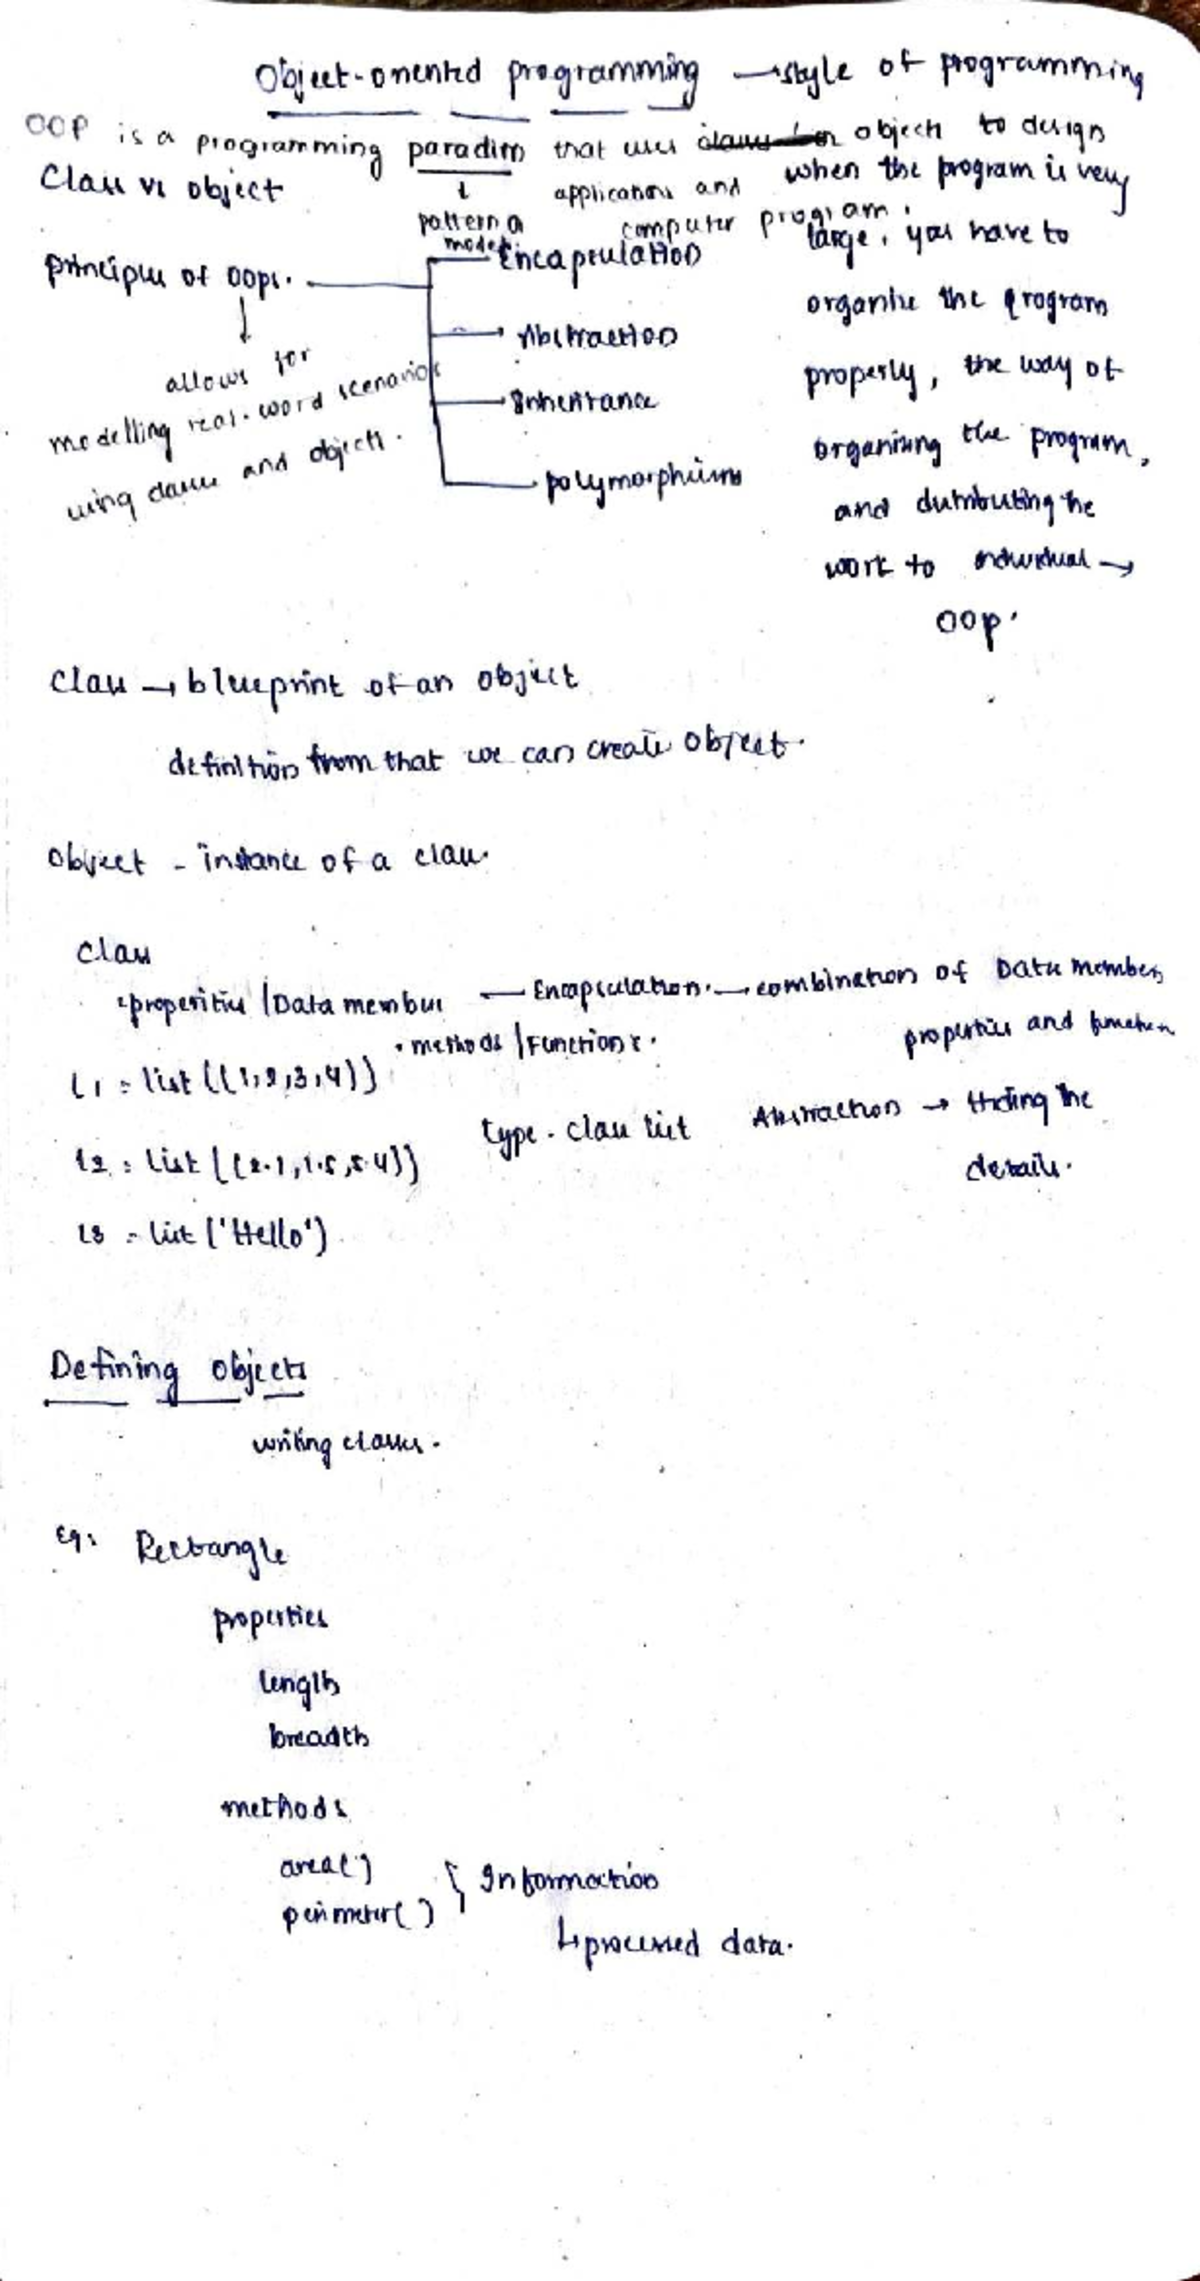 Object-oriented programming → style of programming
OOP is a programming paradim that uses objects to design
applications and
computer program.
↓
pattern or
model
Class vs object
when the program is very
large, you have to
organize the program
properly, the way of
organising the program,
and distributing the
work to individual →
OOP.
principles of oops.
Encapsulation
Abstraction
Inheritance
polymorphism
↓
allows for
modelling real-word scenarios
using classes and objects.
Class → blueprint of an object
definition from that we can create object.
Object - instance of a class.
Class
properities / Data members — Encapsulation. — combination of Data members
properties and function
• methods / Functions.
l1 = list((1,2,3,4))
type - class list
Abstraction → Hiding the
details.
l2 = list((2.1,1.5,5.4))
l3 = list('Hello')
Defining objects
writing classes.
Eg: Rectangle
properties
length
breadth
methods
area()
perimeter() } Information
↳ processed data.